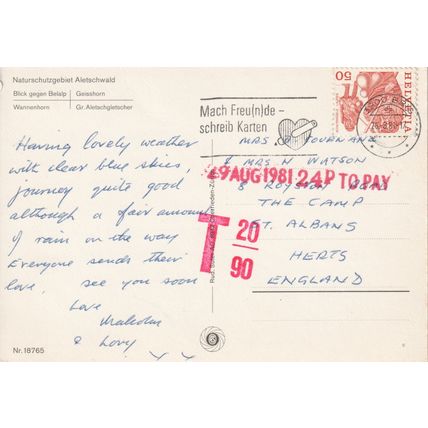 Naturschutzgebiet Aletschwald
Blick gegen Belalp Geisshorn
Wannenhorn Gr. Aletschgletscher
Having lovely weather
with clear blue skies,
journey quite good
although a fair amount
of rain on the way
Everyone sends their
love, see you soon
Love
Malcolm
& Lovy
Nr. 18765
Mach Freu(n)de –
schreib Karten
50
HELVETIA
MRS
& MRS N WATSON
8 ROYSTON ROAD
THE CAMP
ST. ALBANS
HERTS
ENGLAND
9 AUG 1981 24P TO PAY
T 20/90